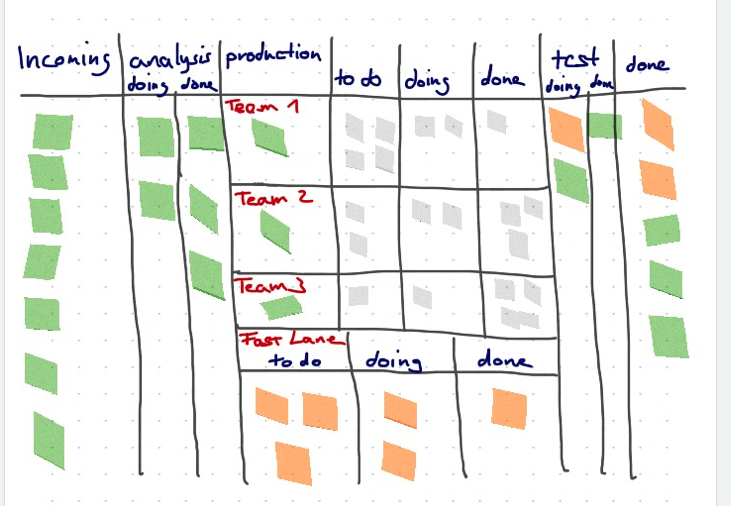 Incoming
analysis
doing done
production
to do
doing
done
test
doing done
done
Team 1
Team 2
Team 3
Fast Lane
to do
doing
done